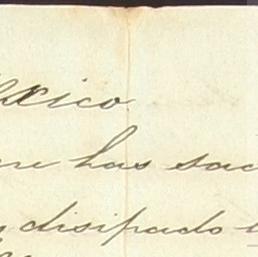 México
me has sac
y disipado